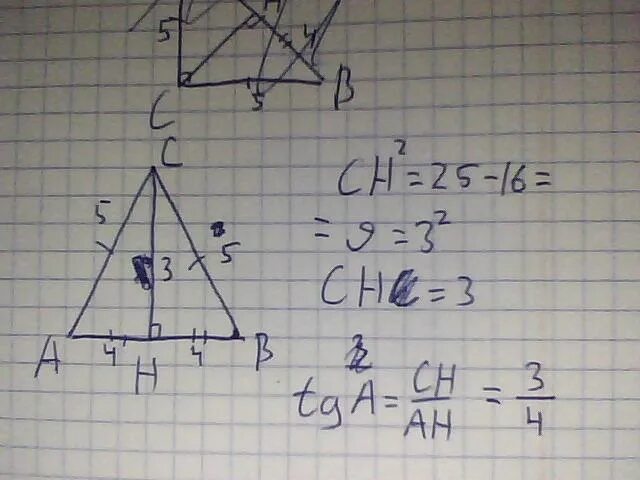 5 4
C 5 B
C
5 5
3
A 4 H 4 B
CH² = 25 - 16 =
= 9 = 3²
CH = 3
tg A = CH / AH = 3 / 4